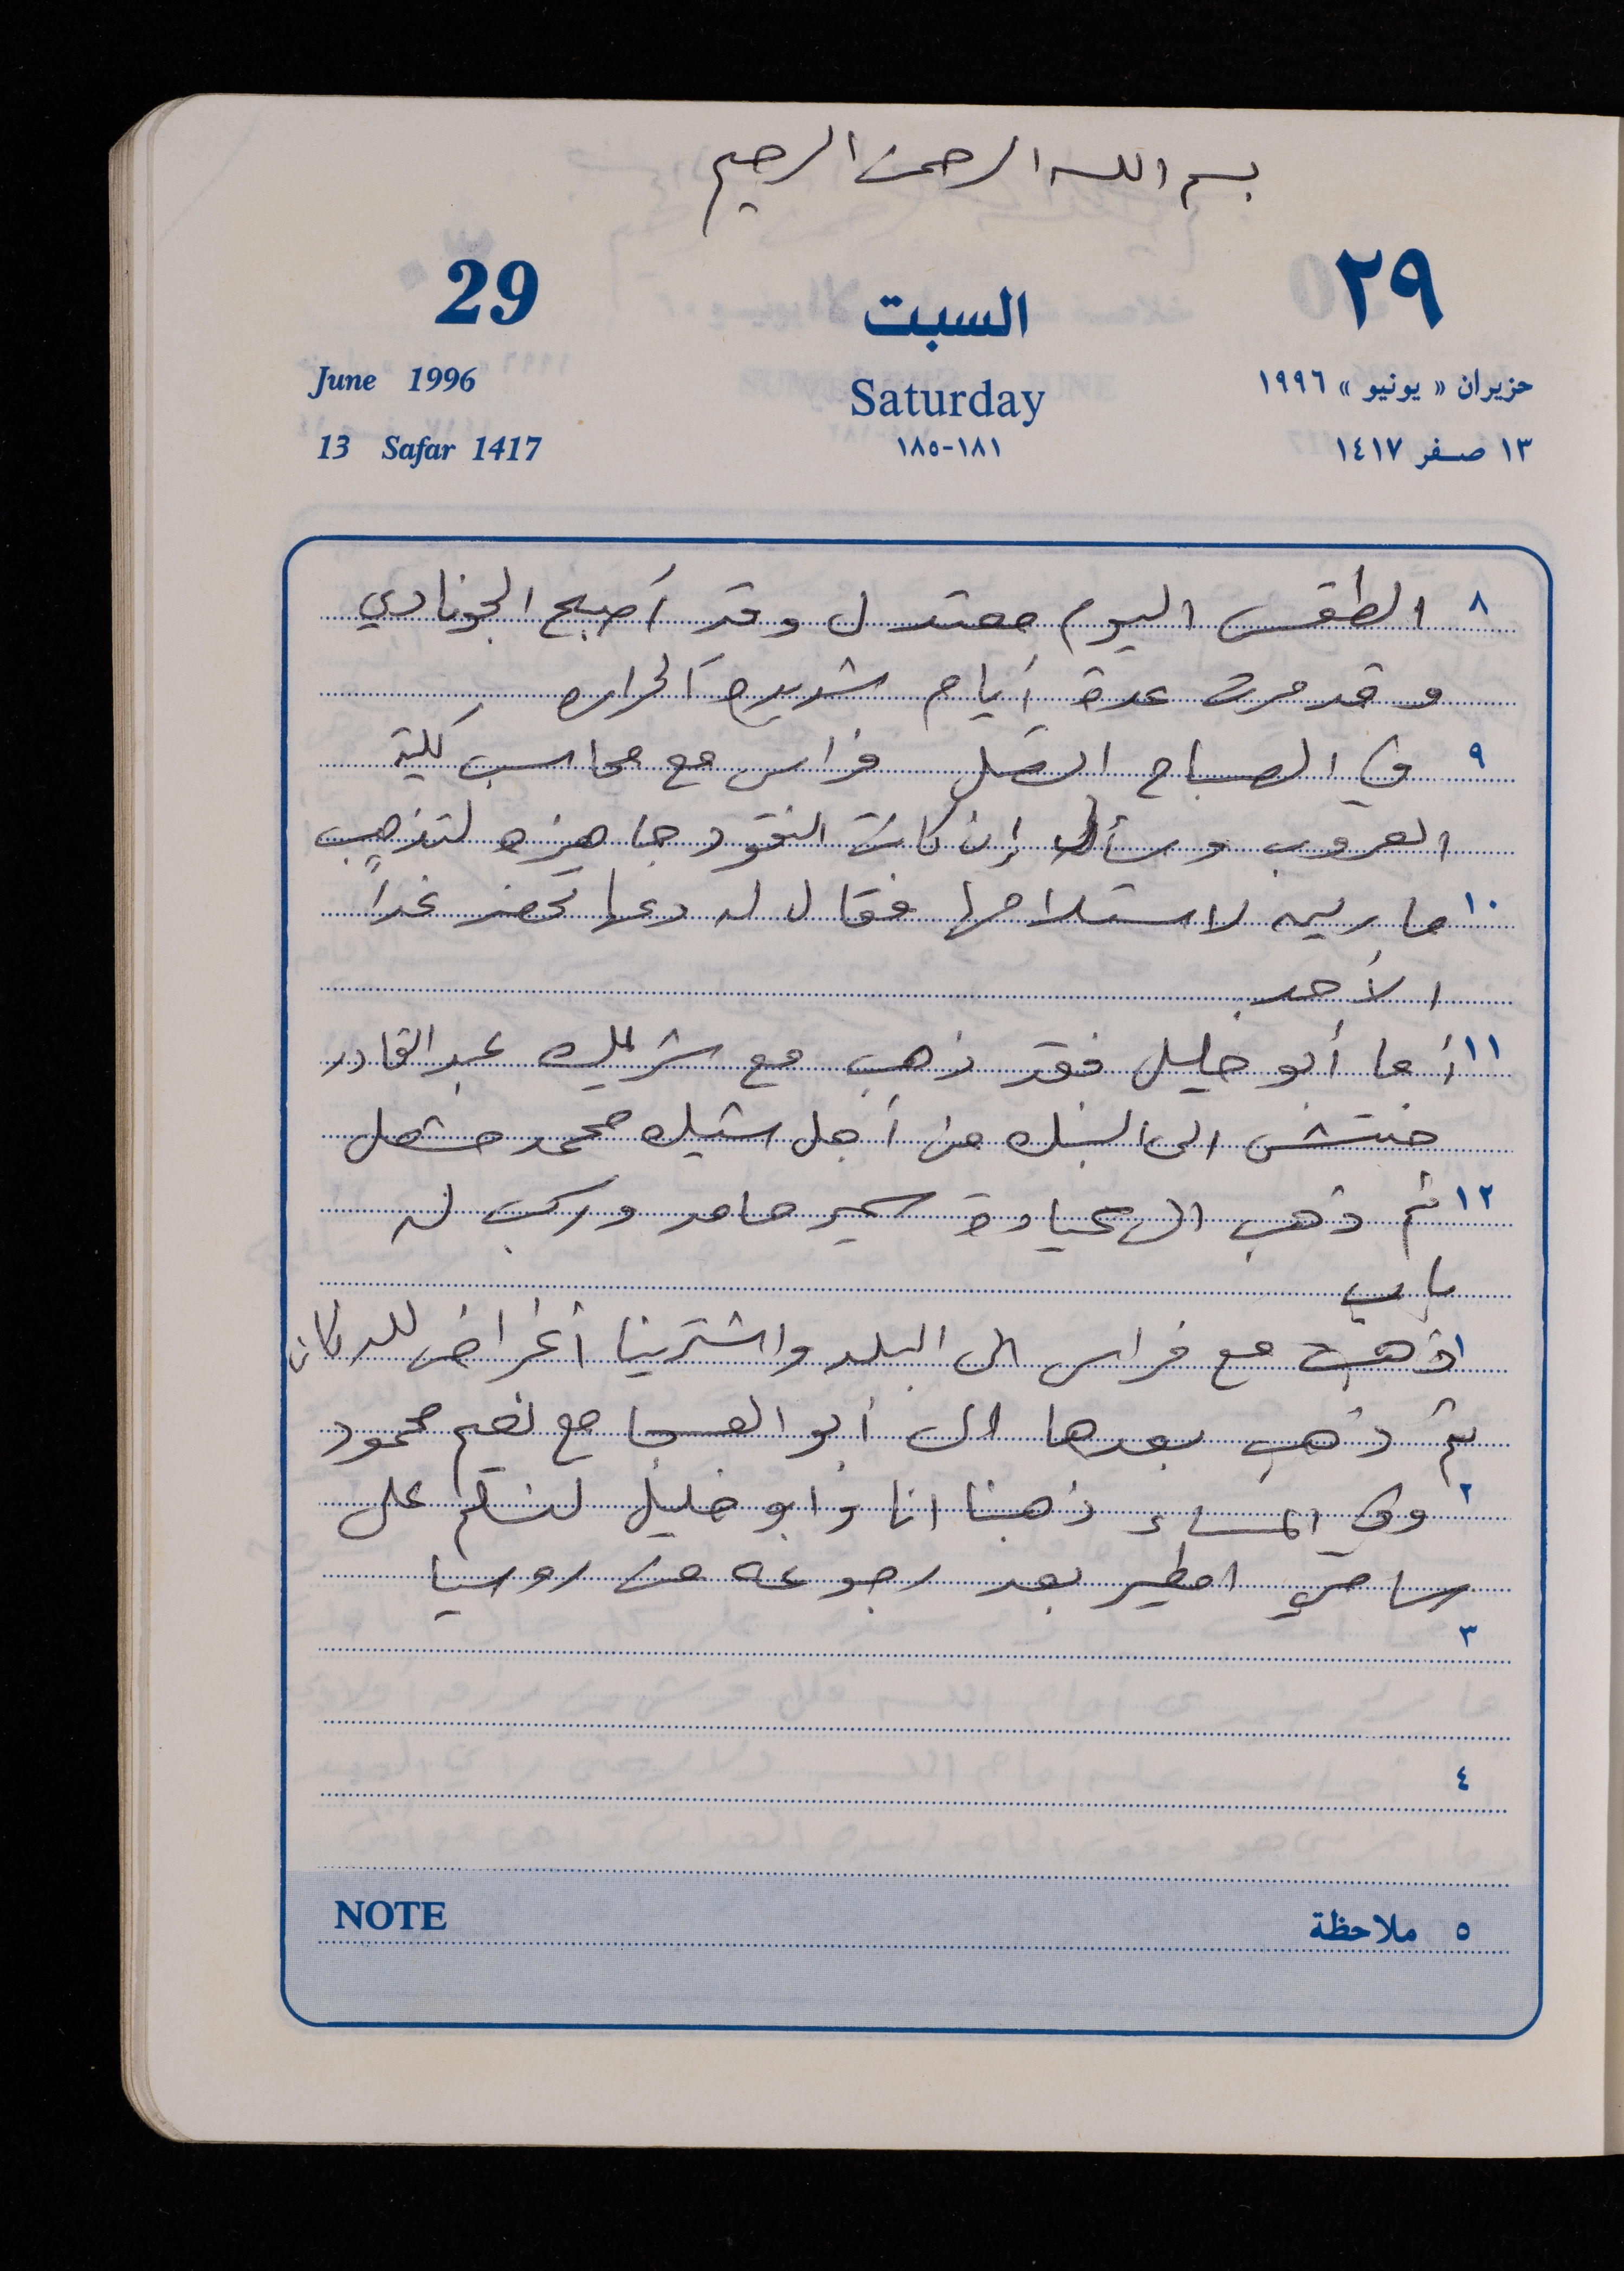 بسم الله الرحمن الرحيم
29 السبت ٢٩
June 1996 Saturday حزيران « يونيو » ١٩٩٦
13 Safar 1417 ١٨١-١٨٥ ١٣ صفر ١٤١٧
٨ الطقس اليوم معتدل وقد أصبح الجو نادي
وقد مرت عدة أيام شديدة الحراره
٩ في الصباح اتصل فراس مع محاسب كلية
العروب وسأله إن كانت النقود جاهزه لتذهب
١٠ ماريه لاستلامها فقال له دعها تحضر غداً
الأحد
١١ أما أبو خليل فقد ذهب مع شريكه عبد القادر
الى البنك من أجل شيك محمد مشعل
١٢ ثم ذهب الى عيادة سمير حامد وركب له
باب
١ ذهبت مع فراس الى البلد واشترينا أغراض للدكان
ثم ذهب بعدها الى أبو العسجا مع نعيم محمود
٢ وفي المساء ذهبنا انا وأبو خليل لنسلم على
سامي امطير بعد رجوعه من روسيا
٣
٤
NOTE ٥ ملاحظة